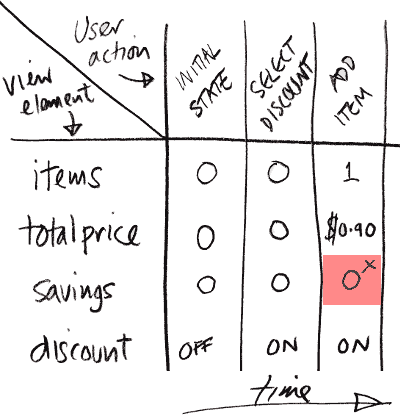 User action
view element
INITIAL STATE
SELECT DISCOUNT
ADD ITEM
items 0 0 1
total price 0 0 $0.90
savings 0 0 0x
discount OFF ON ON
time